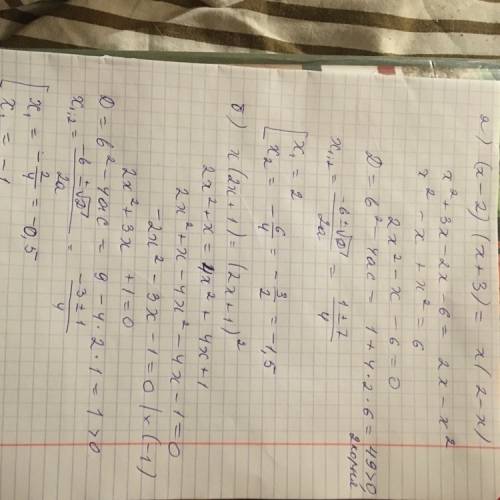 а) (x-2)(x+3) = x(2-x)
x² + 3x - 2x - 6 = 2x - x²
x² - x + x² = 6
2x² - x - 6 = 0
D = b² - 4ac = 1 + 4·2·6 = 49>0
2 корня
x₁,₂ = (-b ± √D)/2a = (1 ± 7)/4
[ x₁ = 2
x₂ = -6/4 = -3/2 = -1,5
б) x(2x+1) = (2x+1)²
2x² + x = 4x² + 4x + 1
2x² + x - 4x² - 4x - 1 = 0
-2x² - 3x - 1 = 0 | × (-1)
2x² + 3x + 1 = 0
D = b² - 4ac = 9 - 4·2·1 = 1 > 0
x₁,₂ = (-b ± √D)/2a = (-3 ± 1)/4
[ x₁ = -2/4 = -0,5
x₁ = -1